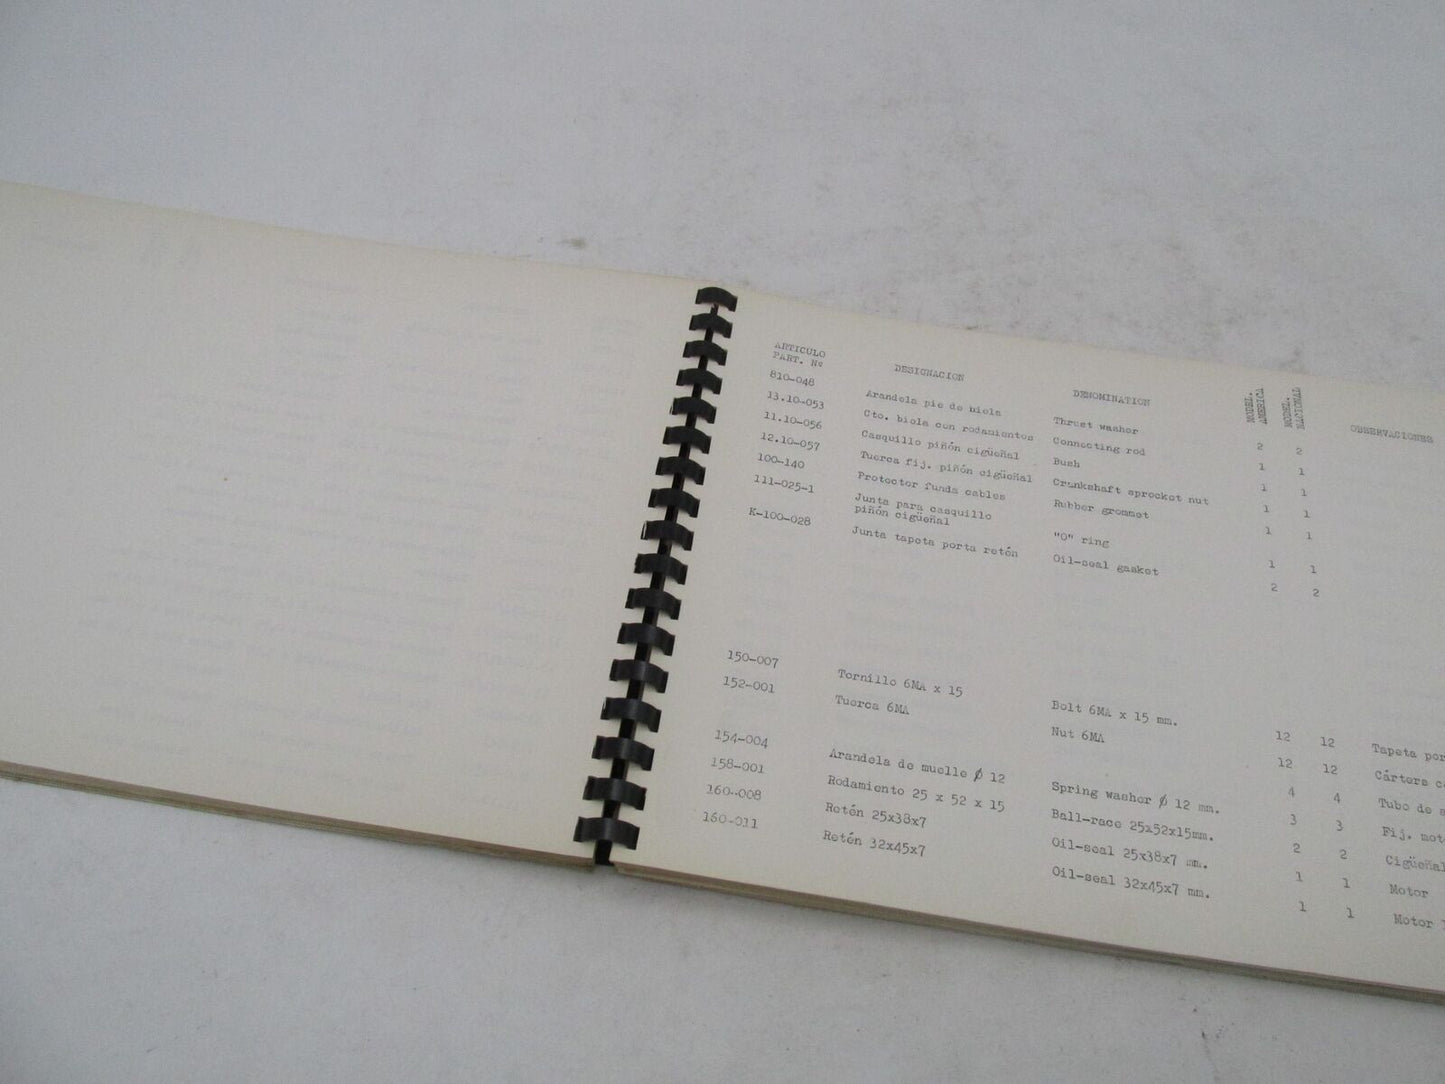 ARTICULO
PART. Nº DESIGNACION DENOMINATION MODEL. MODEL. OBSERVACIONES
810-048 Arandela pie de biela Thrust washer 2 2
13.10-053 Cto. biela con rodamientos Connecting rod 1 1
11.10-056 Casquillo piñón cigüeñal Bush 1 1
12.10-057 Tuerca fij. piñón cigüeñal Crankshaft sprocket nut 1 1
100-140 Protector funda cables Rubber grommet 1 1
111-025-1 Junta para casquillo
piñón cigüeñal "O" ring 1 1
K-100-028 Junta tapeta porta retén Oil-seal gasket 2 2
150-007 Tornillo 6MA x 15 Bolt 6MA x 15 mm. 12 12 Tapeta por
152-001 Tuerca 6MA Nut 6MA 12 12 Cártera c
4 4 Tubo de
154-004 Arandela de muelle Ø 12 Spring washer Ø 12 mm. 3 3 Fij. mot
158-001 Rodamiento 25 x 52 x 15 Ball-race 25x52x15mm. 2 2 Cigüeñal
160-008 Retén 25x38x7 Oil-seal 25x38x7 mm. 1 1 Motor
160-011 Retén 32x45x7 Oil-seal 32x45x7 mm. 1 1 Motor